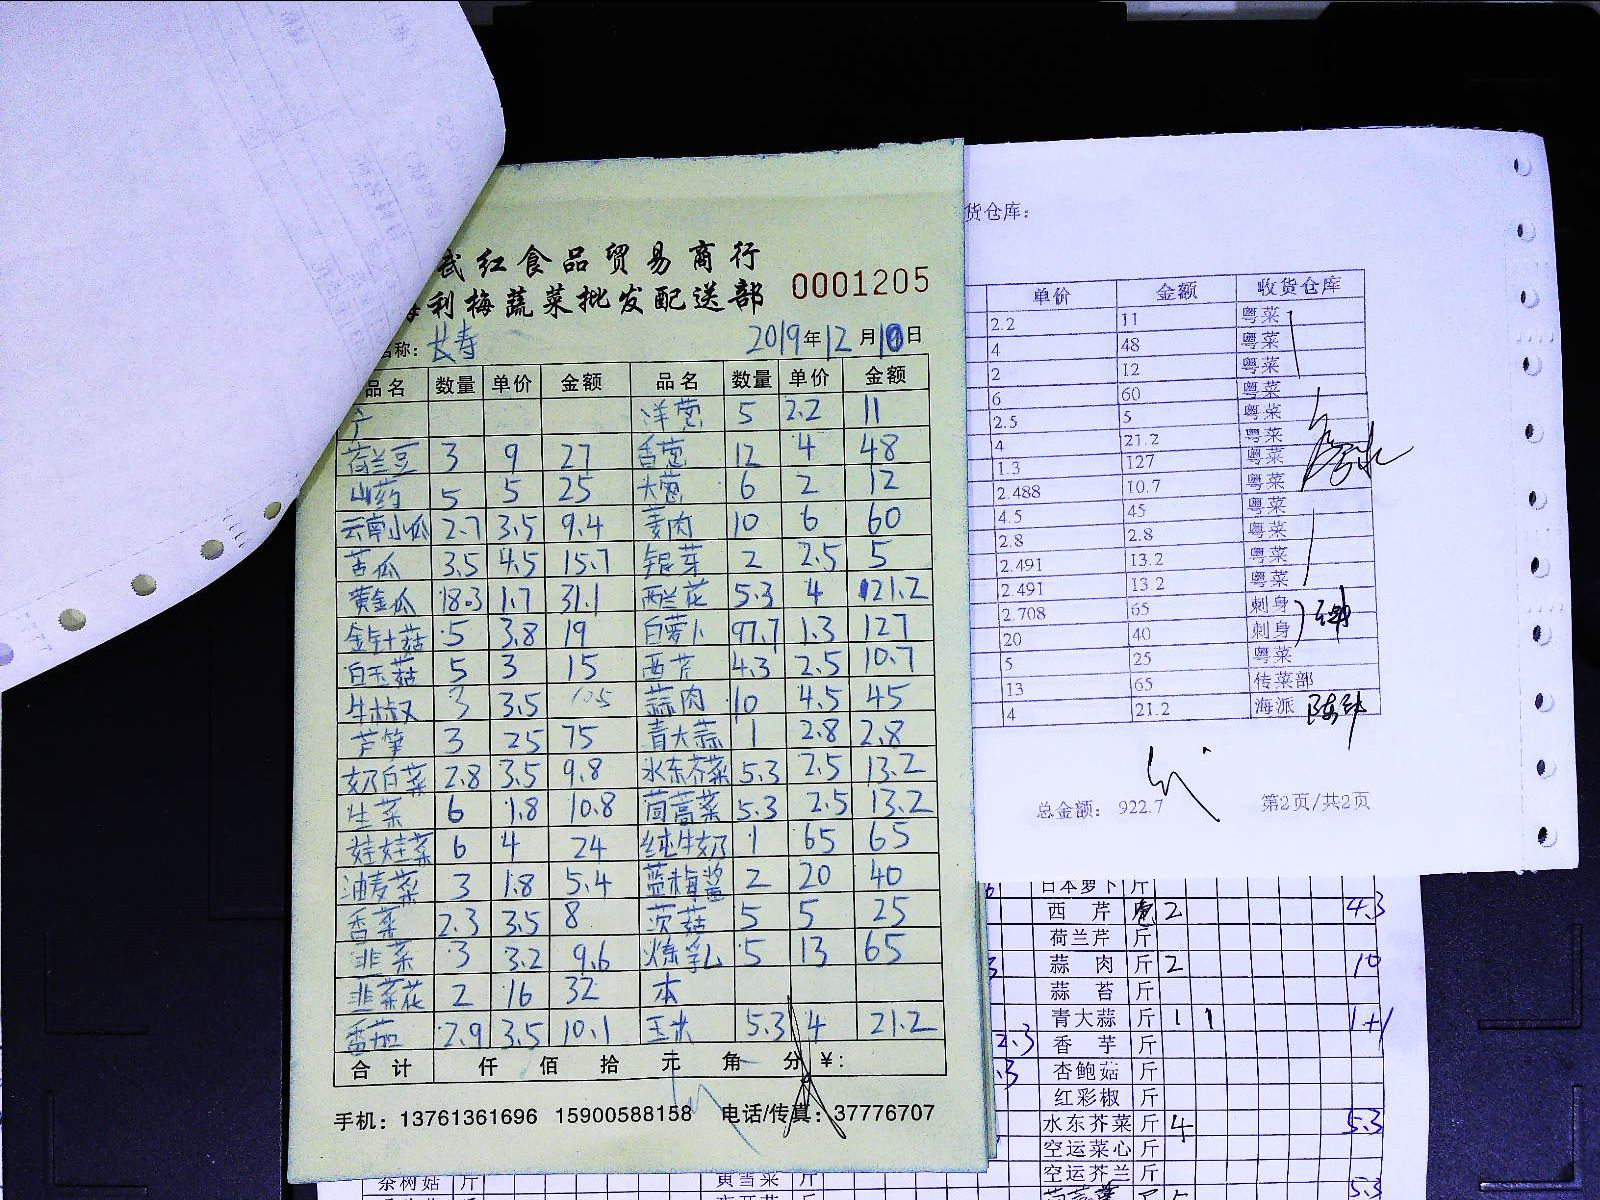 武红食品贸易商行
利梅蔬菜批发配送部 0001205
名称：长寿 2019年12月10日
品名 数量 单价 金额 品名 数量 单价 金额
洋葱 5 2.2 11
荷兰豆 3 9 27 香葱 12 4 48
山药 5 5 25 大葱 6 2 12
云南小瓜 2.7 3.5 9.4 姜肉 10 6 60
苦瓜 3.5 4.5 15.7 银芽 2 2.5 5
黄金瓜 18.3 1.7 31.1 西兰花 5.3 4 21.2
金针菇 5 3.8 19 白萝卜 97.7 1.3 127
白玉菇 5 3 15 西芹 4.3 2.5 10.7
牛椒 3 3.5 10.5 蒜肉 10 4.5 45
芦笋 3 25 75 青大蒜 1 2.8 2.8
奶白菜 2.8 3.5 9.8 水东芥菜 5.3 2.5 13.2
生菜 6 1.8 10.8 茼蒿菜 5.3 2.5 13.2
娃娃菜 6 4 24 纯牛奶 1 65 65
油麦菜 3 1.8 5.4 蓝梅酱 2 20 40
香菜 2.3 3.5 8 茨菇 5 5 25
韭菜 3 3.2 9.6 炼乳 5 13 65
韭菜花 2 16 32 本
番茄 2.9 3.5 10.1 玉米 5.3 4 21.2
合计 仟 佰 拾 元 角 分 ￥：
手机：13761361696 15900588158 电话/传真：37776707
货仓库：
单价 金额 收货仓库
2.2 11 粤菜
4 48 粤菜
2 12 粤菜
6 60 粤菜
2.5 5 粤菜
4 21.2 粤菜
1.3 127 粤菜
2.488 10.7 粤菜
4.5 45 粤菜
2.8 2.8 粤菜
2.491 13.2 粤菜
2.491 13.2 粤菜
2.708 65 刺身
20 40 刺身
5 25 粤菜
13 65 传菜部
4 21.2 海派
总金额： 922.7 第2页/共2页
日本萝卜 斤
西芹 2 4.3
荷兰芹 斤
蒜肉 斤 2 10
蒜苔 斤
青大蒜 斤 1 1 1+1
2.3 香芋 斤
杏鲍菇 斤
红彩椒 斤
水东芥菜 斤 4 5.3
空运菜心 斤
空运芥兰 斤
5.3
茶树菇 斤 黄雪菜 斤